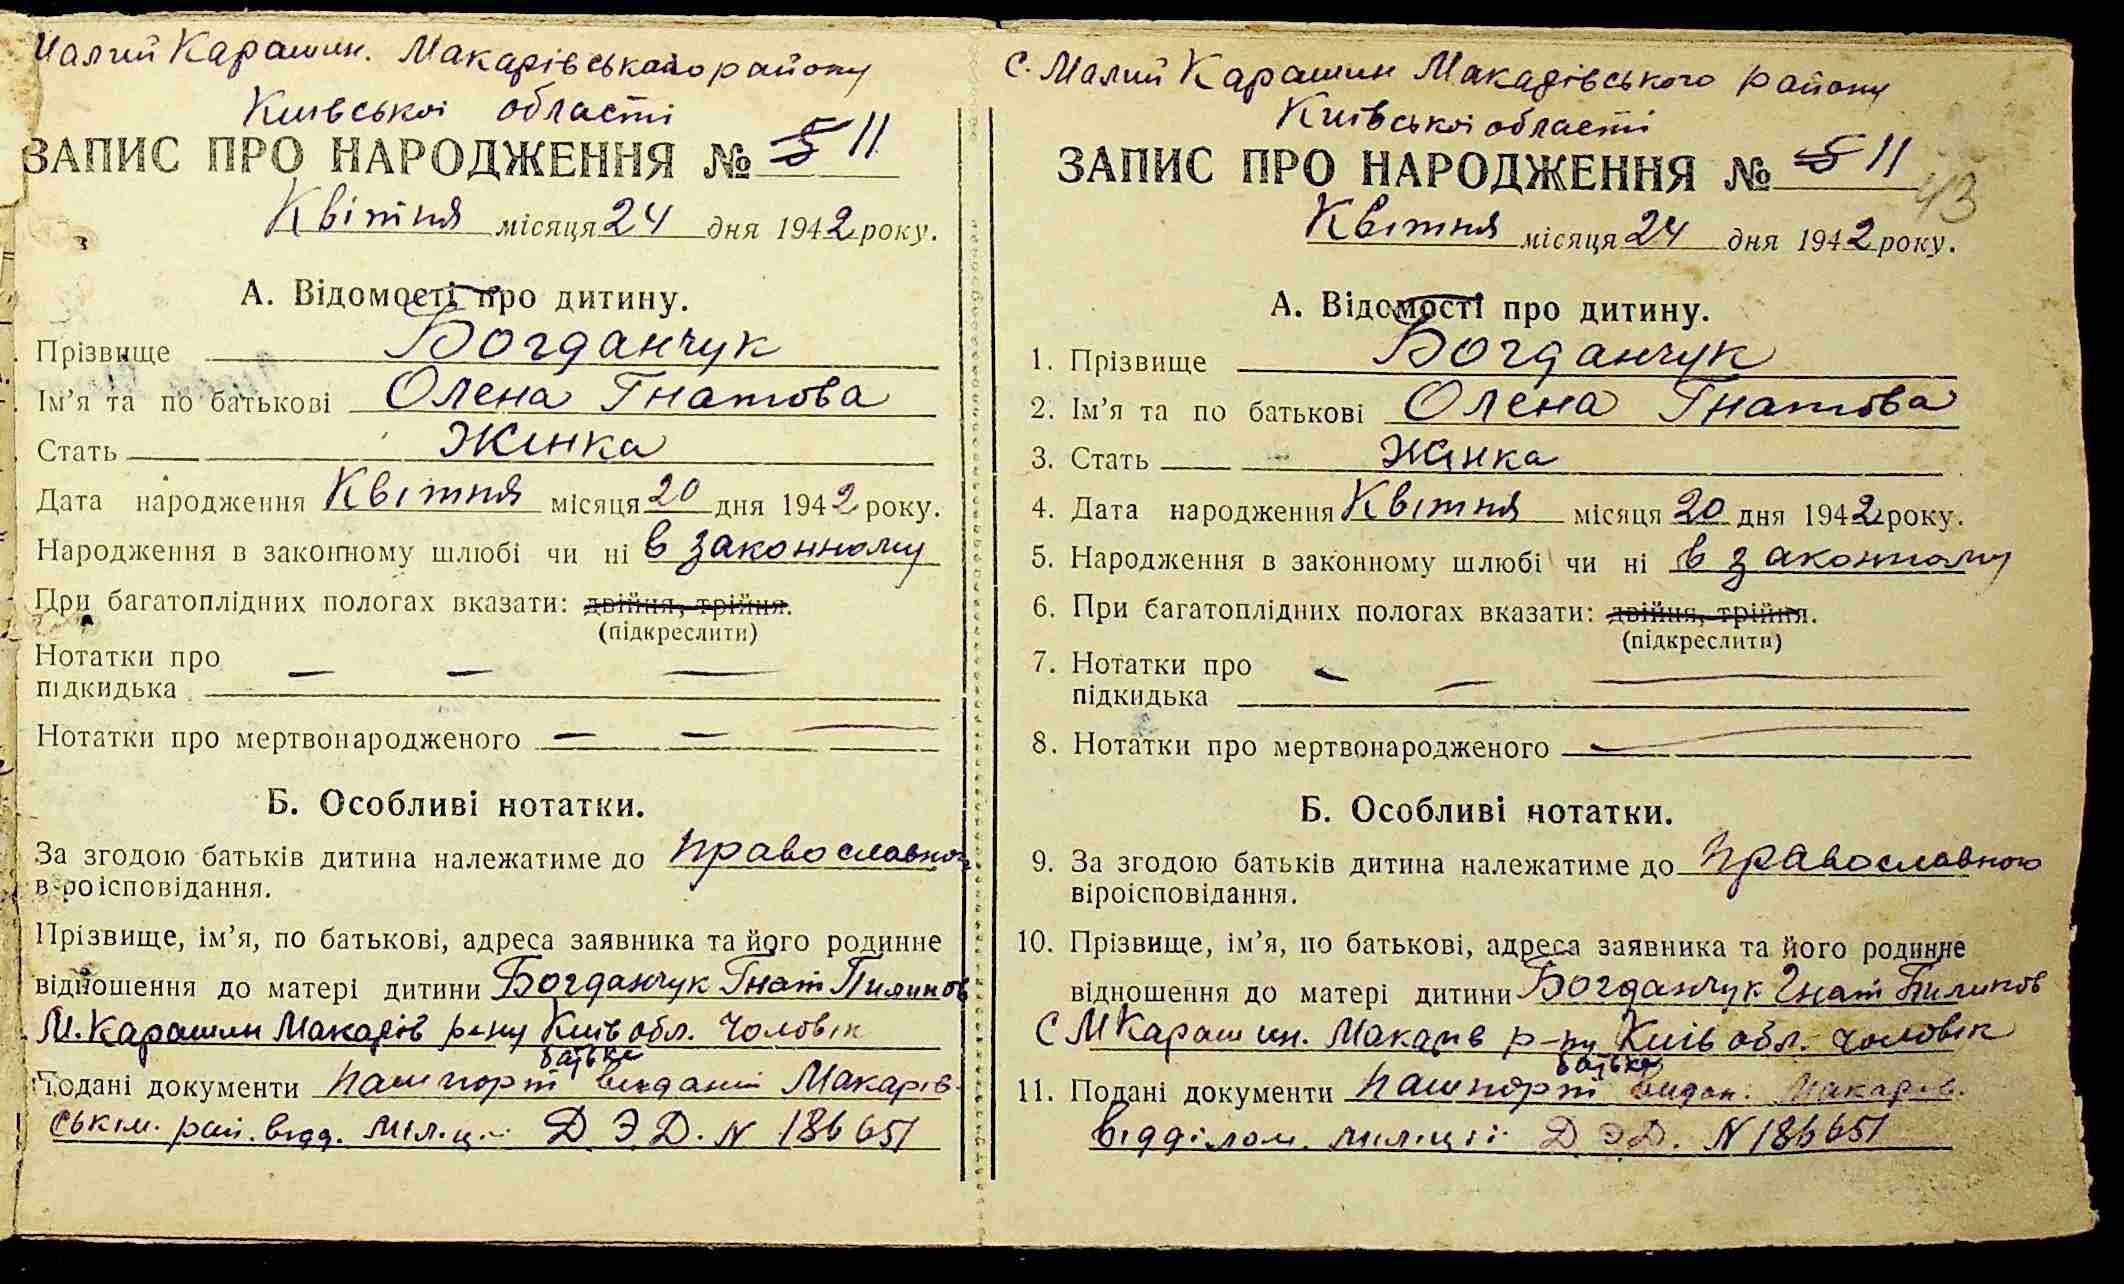 Малий Карашин. Макарівського району
Київської області
ЗАПИС ПРО НАРОДЖЕННЯ № 5 11
Квітня місяця 24 дня 1942 року.
А. Відомості про дитину.
Прізвище Богданчук
Ім’я та по батькові Олена Гнатова
Стать Жінка
Дата народження Квітня місяця 20 дня 1942 року.
Народження в законному шлюбі чи ні в законному
При багатоплідних пологах вказати: двійня, трійня.
(підкреслити)
Нотатки про
підкидька
Нотатки про мертвонародженого
Б. Особливі нотатки.
За згодою батьків дитина належатиме до православної
віроісповідання.
Прізвище, ім’я, по батькові, адреса заявника та його родинне
відношення до матері дитини Богданчук Гнат Пилипов
М. Карашин Макарів р-ну Київ обл. Чоловік
батько
Подані документи пашпорт виданий Макарів-
ськім. рай. відд. міліції Д Э Д. N 186651
С. Малий Карашин Макарівського району
Київської області
ЗАПИС ПРО НАРОДЖЕННЯ № 5 11
43
Квітня місяця 24 дня 1942 року.
А. Відомості про дитину.
1. Прізвище Богданчук
2. Ім’я та по батькові Олена Гнатова
3. Стать жінка
4. Дата народження Квітня місяця 20 дня 1942 року.
5. Народження в законному шлюбі чи ні в законному
6. При багатоплідних пологах вказати: двійня, трійня.
(підкреслити)
7. Нотатки про
підкидька
8. Нотатки про мертвонародженого
Б. Особливі нотатки.
9. За згодою батьків дитина належатиме до православною
віроісповідання.
10. Прізвище, ім’я, по батькові, адреса заявника та його родинне
відношення до матері дитини Богданчук Гнат Пилипов
С М Карашин. Макарів р-ну Київ обл. чоловік
батько
11. Подані документи пашпорт видан. Макарів.
відділом. міліції Д Э Д. N 186651